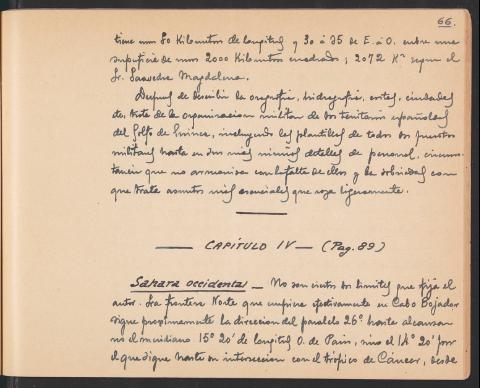 66.
tiene unos 80 Kilometros de longitud y 30 a 35 de E. a O. cubre una
superficie de unos 2000 Kilometros cuadrados; 2072 K² segun el
Sr. Saavedra Magdalena.
Despues de describir la orografia, hidrografia, costas, ciudades
etc. trata de la organizacion militar de los territorios españoles
del Golfo de Guinea, incluyendo las plantillas de todos los puestos
militares hasta en sus mas nimios detalles de personal, circuns-
tancia que no armoniza con la falta de ellos y la sobriedad con
que trata asuntos mas esenciales que roza ligeramente.
CAPÍTULO IV — (Pag. 89)
Sahara occidental — No son ciertos los limites que fija el
autor. La frontera Norte que empieza efectivamente en Cabo Bojador
sigue proximamente la direccion del paralelo 26° hasta alcanzar
no el meridiano 15° 20' de longitud O. de Paris, sino el 14° 20' por
el que sigue hasta su interseccion con el trópico de Cáncer, desde